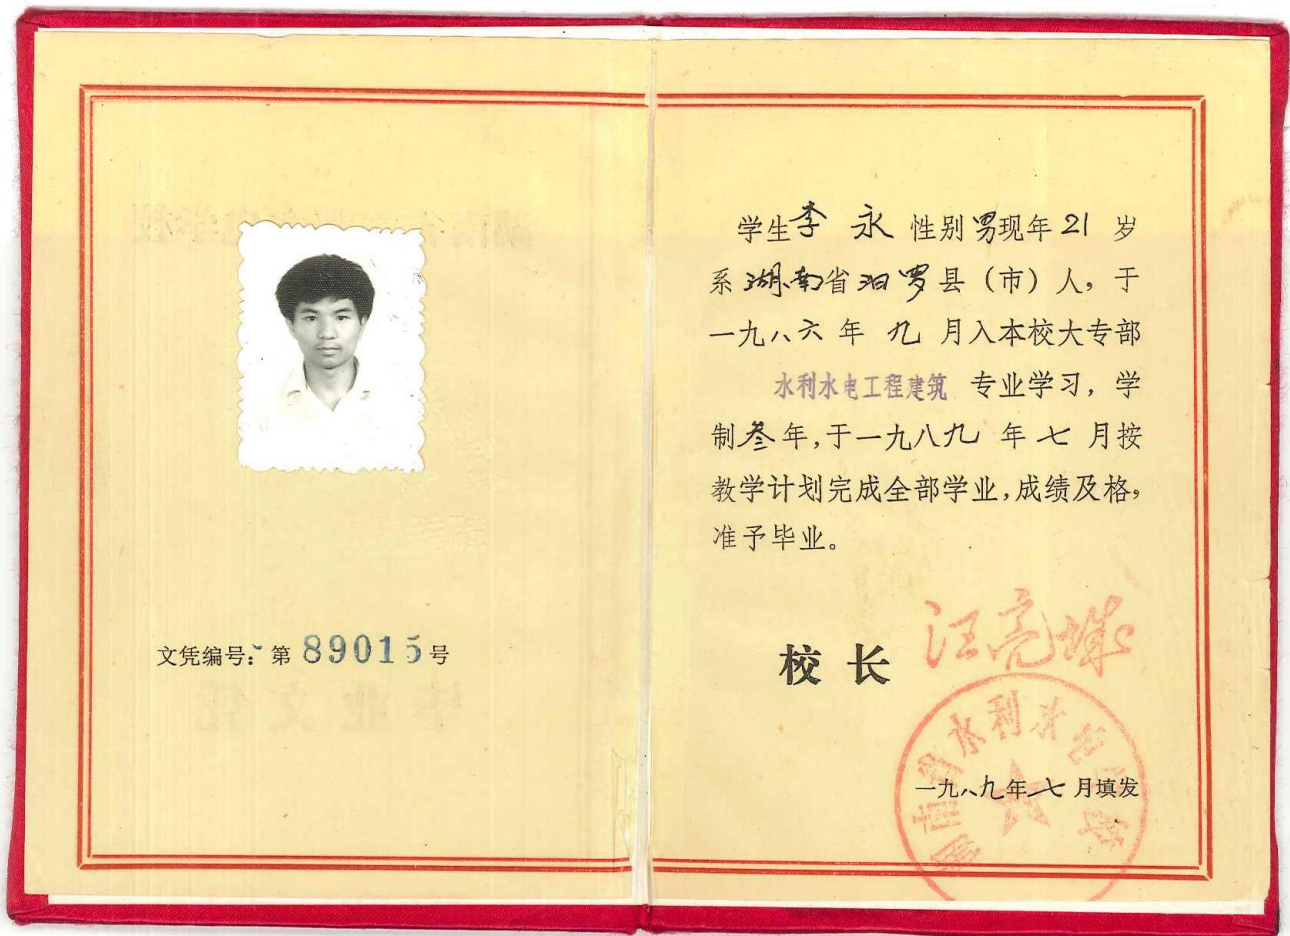 文凭编号：第 89015 号
学生李永 性别男现年21岁
系湖南省汨罗县（市）人，于
一九八六年九月入本校大专部
水利水电工程建筑 专业学习，学
制叁年，于一九八九年七月按
教学计划完成全部学业，成绩及格，
准予毕业。
校长
湖南省水利水电学校
一九八九年七月填发